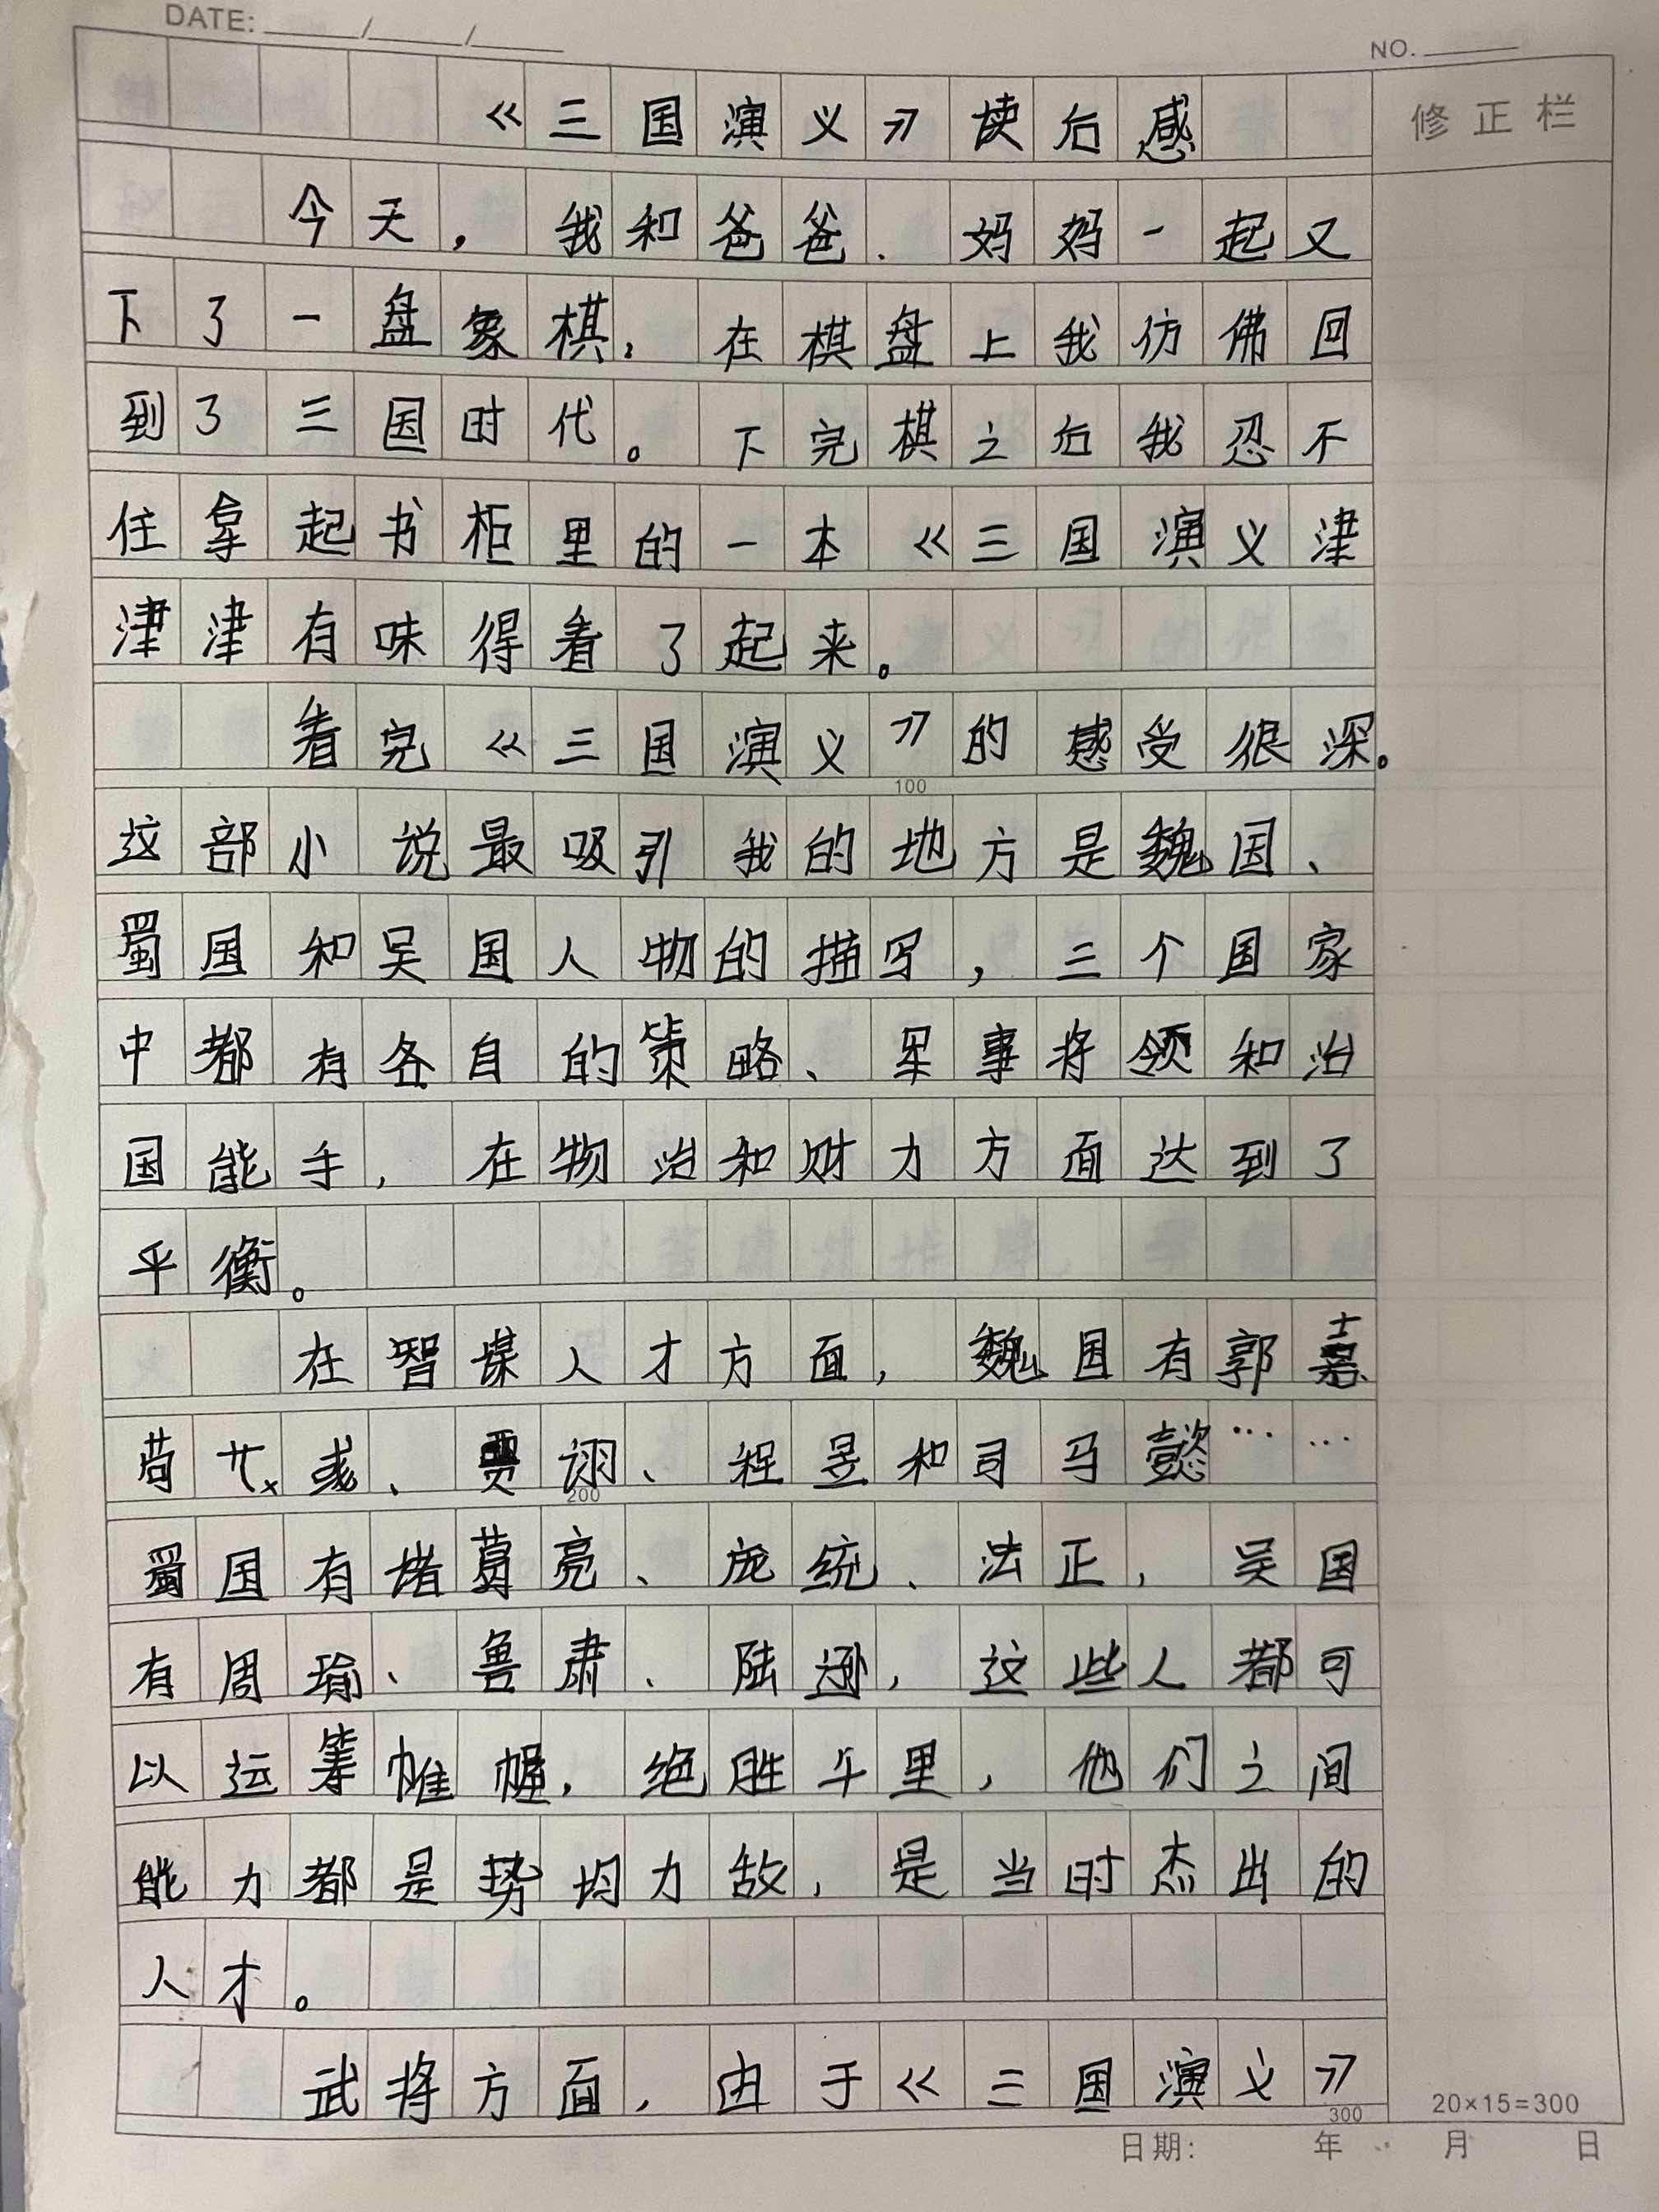 DATE: / /
NO.
修正栏
《三国演义》读后感
今天，我和爸爸、妈妈一起又
下了一盘象棋，在棋盘上我仿佛回
到了三国时代。下完棋之后我忍不
住拿起书柜里的一本《三国演义津
津津有味得看了起来。
看完《三国演义》的感受很深。
100
这部小说最吸引我的地方是魏国、
蜀国和吴国人物的描写，三个国家
中都有各自的策略、军事将领和治
国能手，在物治和财力方面达到了
平衡。
在智谋人才方面，魏国有郭嘉
荀彧、贾诩、程昱和司马懿……
200
蜀国有诸葛亮、庞统、法正，吴国
有周瑜、鲁肃、陆逊，这些人都可
以运筹帷幄，绝胜千里，他们之间
能力都是势均力敌，是当时杰出的
人才。
武将方面，由于《三国演义》
300
20×15=300
日期： 年 月 日